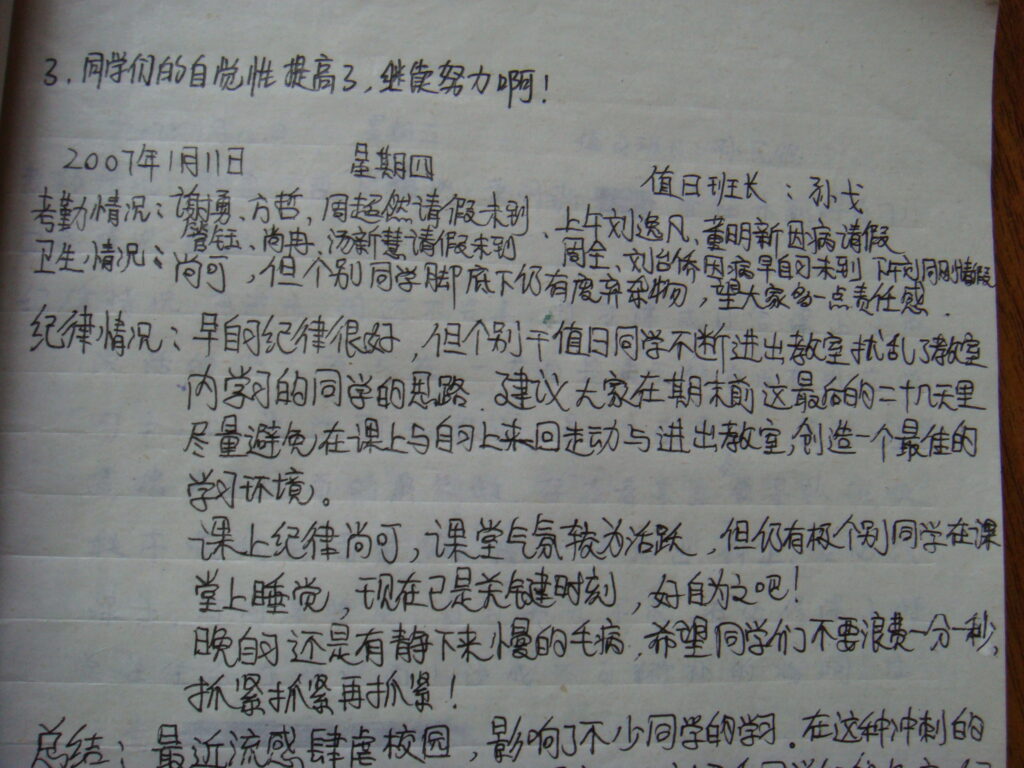 3. 同学们的自觉性提高了，继续努力啊！
2007年1月11日 星期四 值日班长：孙戈
考勤情况：谢勇、方哲、周超然请假未到、上午刘逸凡、董明新因病请假
管钰、尚冉、汤新慧请假未到 周全、刘台侨因病早自习未到 下午
卫生情况：尚可，但个别同学脚底下仍有废弃杂物，望大家多一点责任感.
纪律情况：早自习纪律很好，但个别干值日同学不断进出教室扰乱了教室
内学习的同学的思路.建议大家在期末前这最后的二十几天里
尽量避免在课上与自习上来回走动与进出教室，创造一个最佳的
学习环境。
课上纪律尚可，课堂气氛较为活跃，但仍有极个别同学在课
堂上睡觉，现在已是关键时刻，好自为之吧！
晚自习还是有静下来慢的毛病，希望同学们不要浪费一分一秒，
抓紧抓紧再抓紧！
总结：最近流感肆虐校园，影响了不少同学的学习.在这种冲刺的